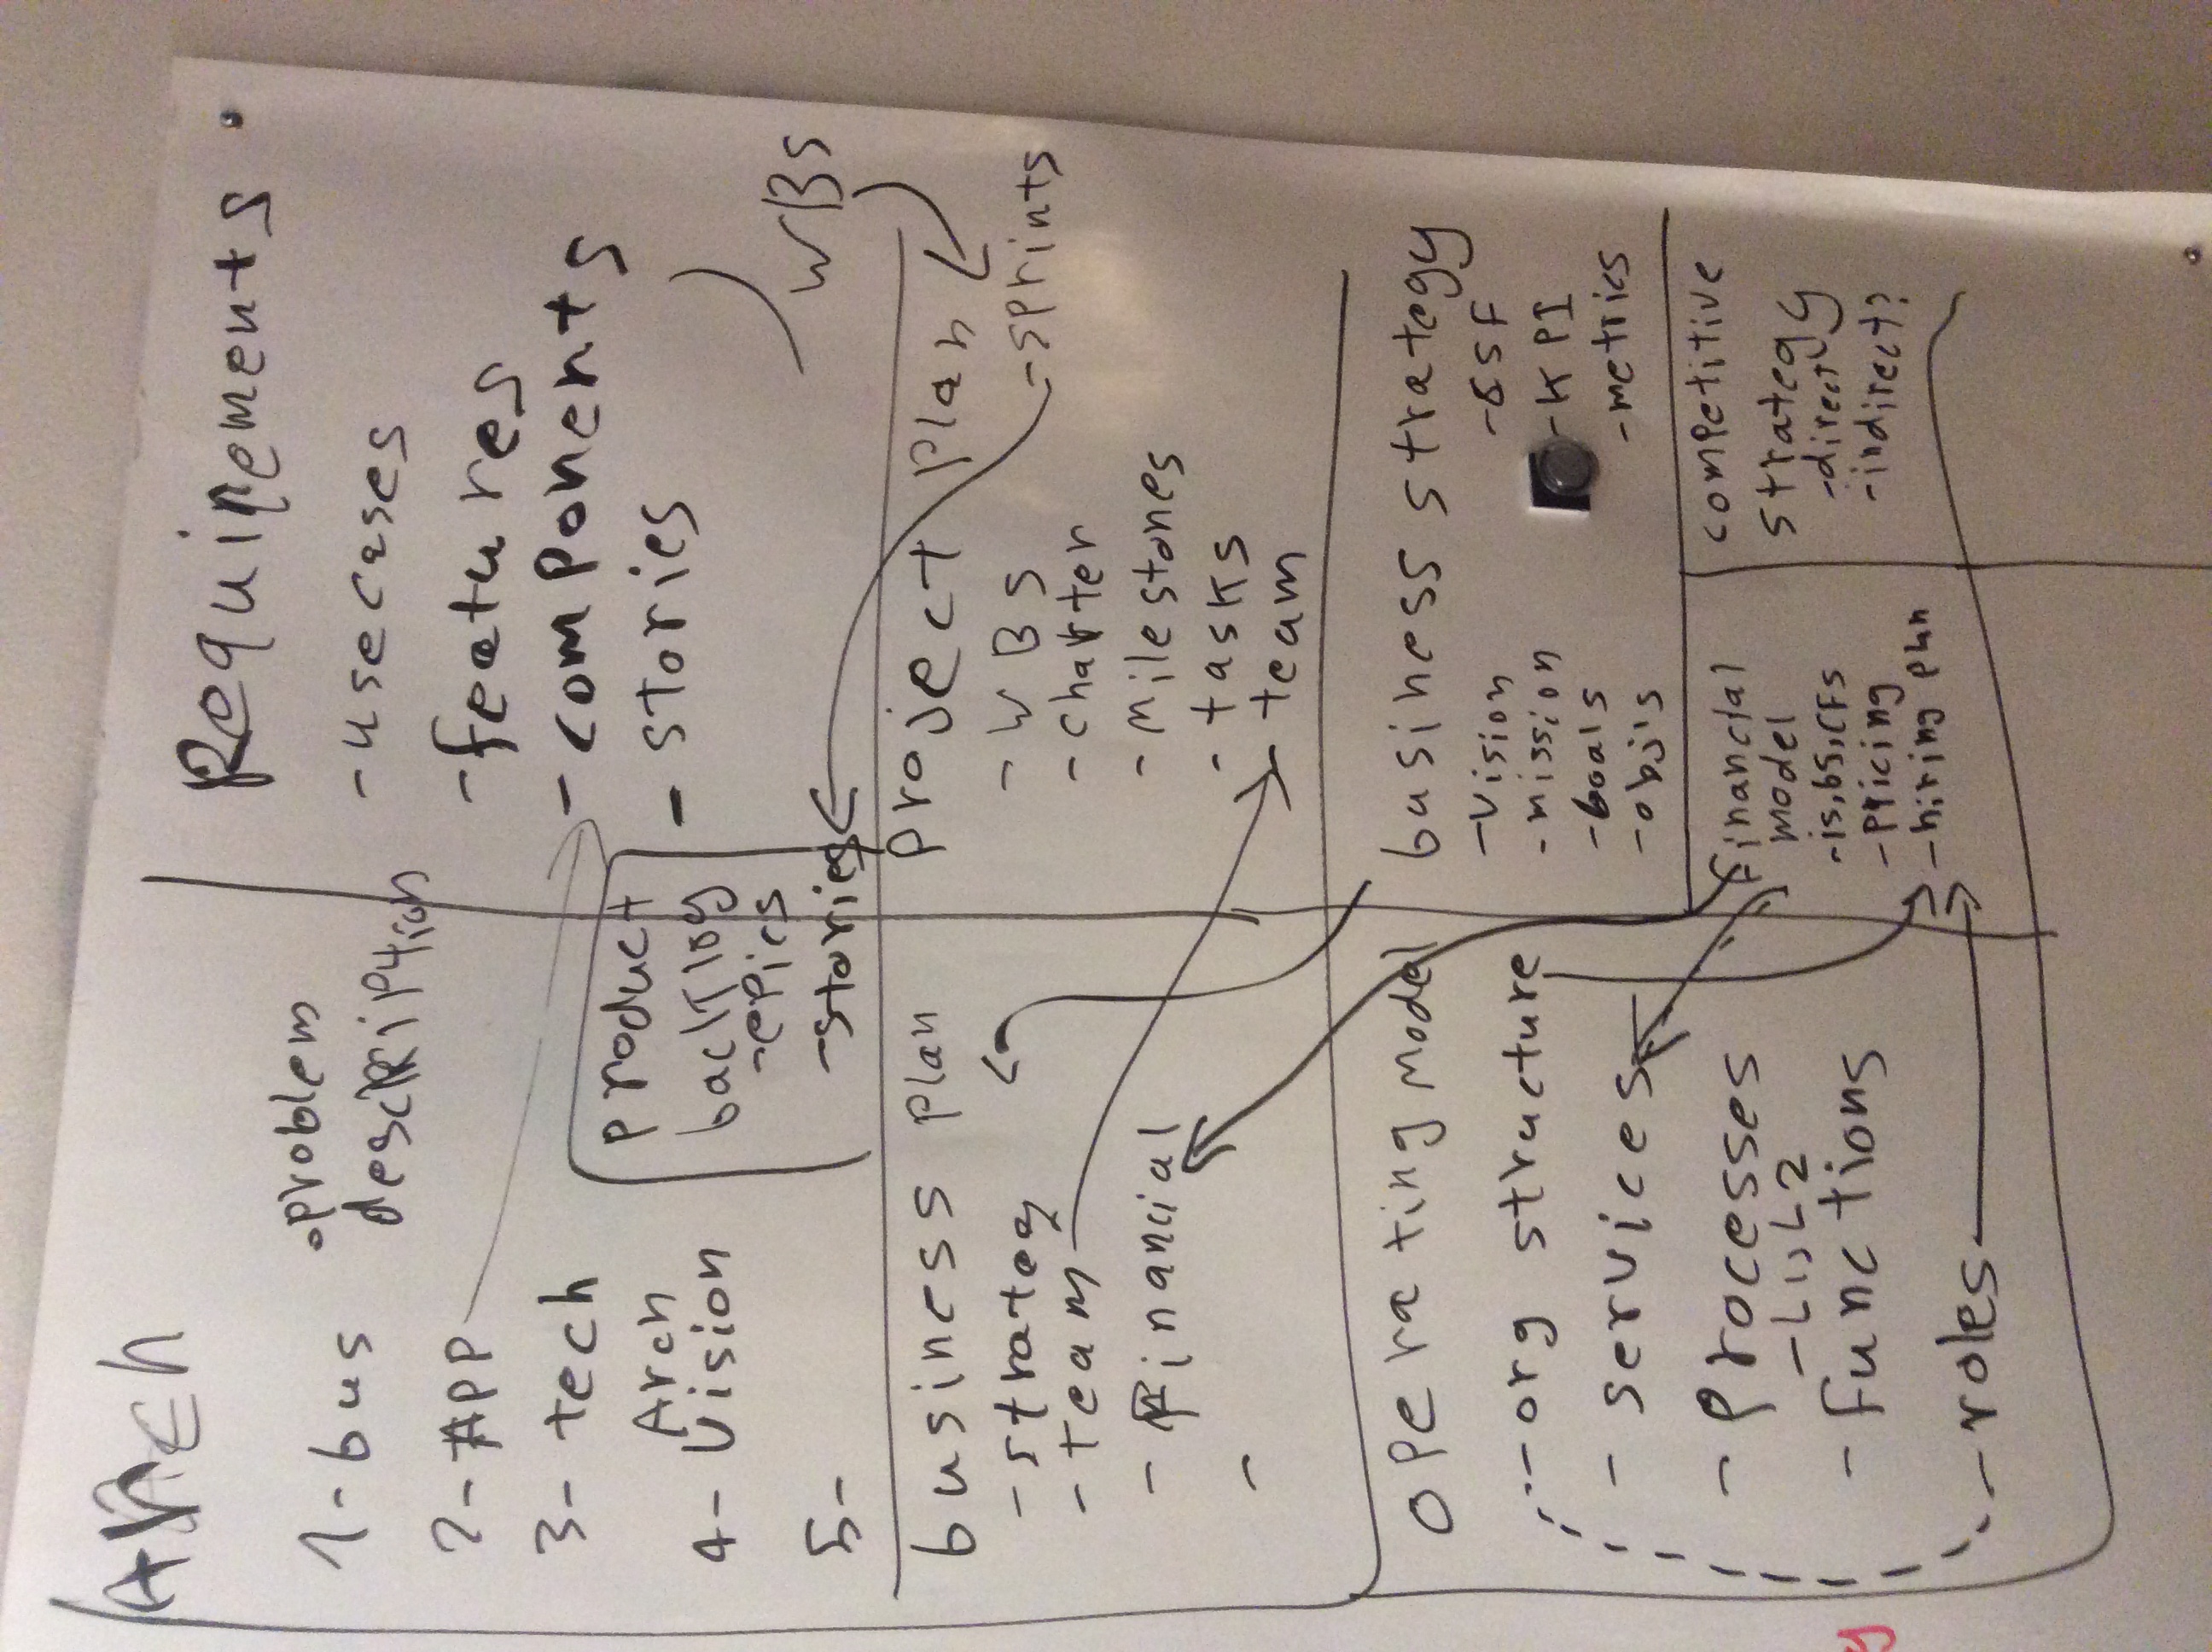 Arch
1- bus
• problem
description
2- App
3- tech
Arch
4- Vision
5-
product
backlog
- epics
- stories
Requirements
- usecases
- features
- components
- stories
WBS
business plan
- strateg
- team
- Financial
-
project plan
- WBS
- sprints
- charter
- Milestones
- tasks
- team
operating model
- org structure
- services
- Processes
- L1, L2
- functions
- roles
business strategy
- Vision
- mission
- Goals
- obj's
- CSF
- KPI
- metrics
financial
model
- is, bs, CFs
- pricing
- hiring plan
competitive
strategy
- direct
- indirect?
y